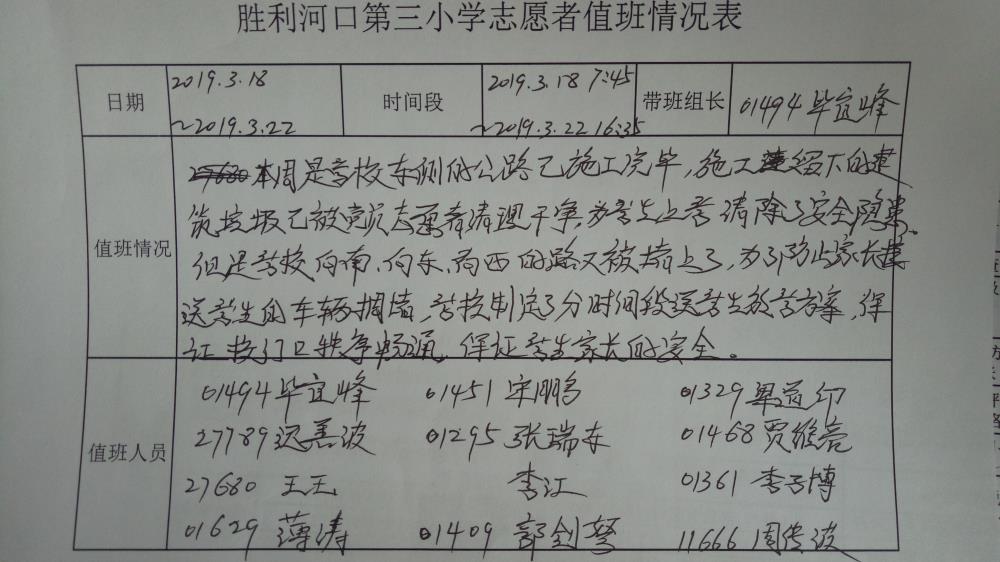 胜利河口第三小学志愿者值班情况表
日期 2019.3.18 时间段 2019.3.18 7:45 带班组长 01494 毕宜峰
~2019.3.22 ~2019.3.22 16:35
本周是学校东侧的公路已施工完毕,施工留下的建
筑垃圾已被党员志愿者清理干净,为学生上学清除了安全隐患。
值班情况 但是学校向南、向东、向西的路又被堵上了,为了防止家长接
送学生的车辆拥堵,学校制定了分时间段送学生放学方案,保
证校门口秩序畅通,保证学生家长的安全。
01494 毕宜峰 01451 宋鹏 01329 道印
值班人员 27789 迟善波 01295 张瑞东 01468 贾维亮
27680 王玉 李江 01361 李子博
01629 薄涛 01409 郭剑 11666 周传波